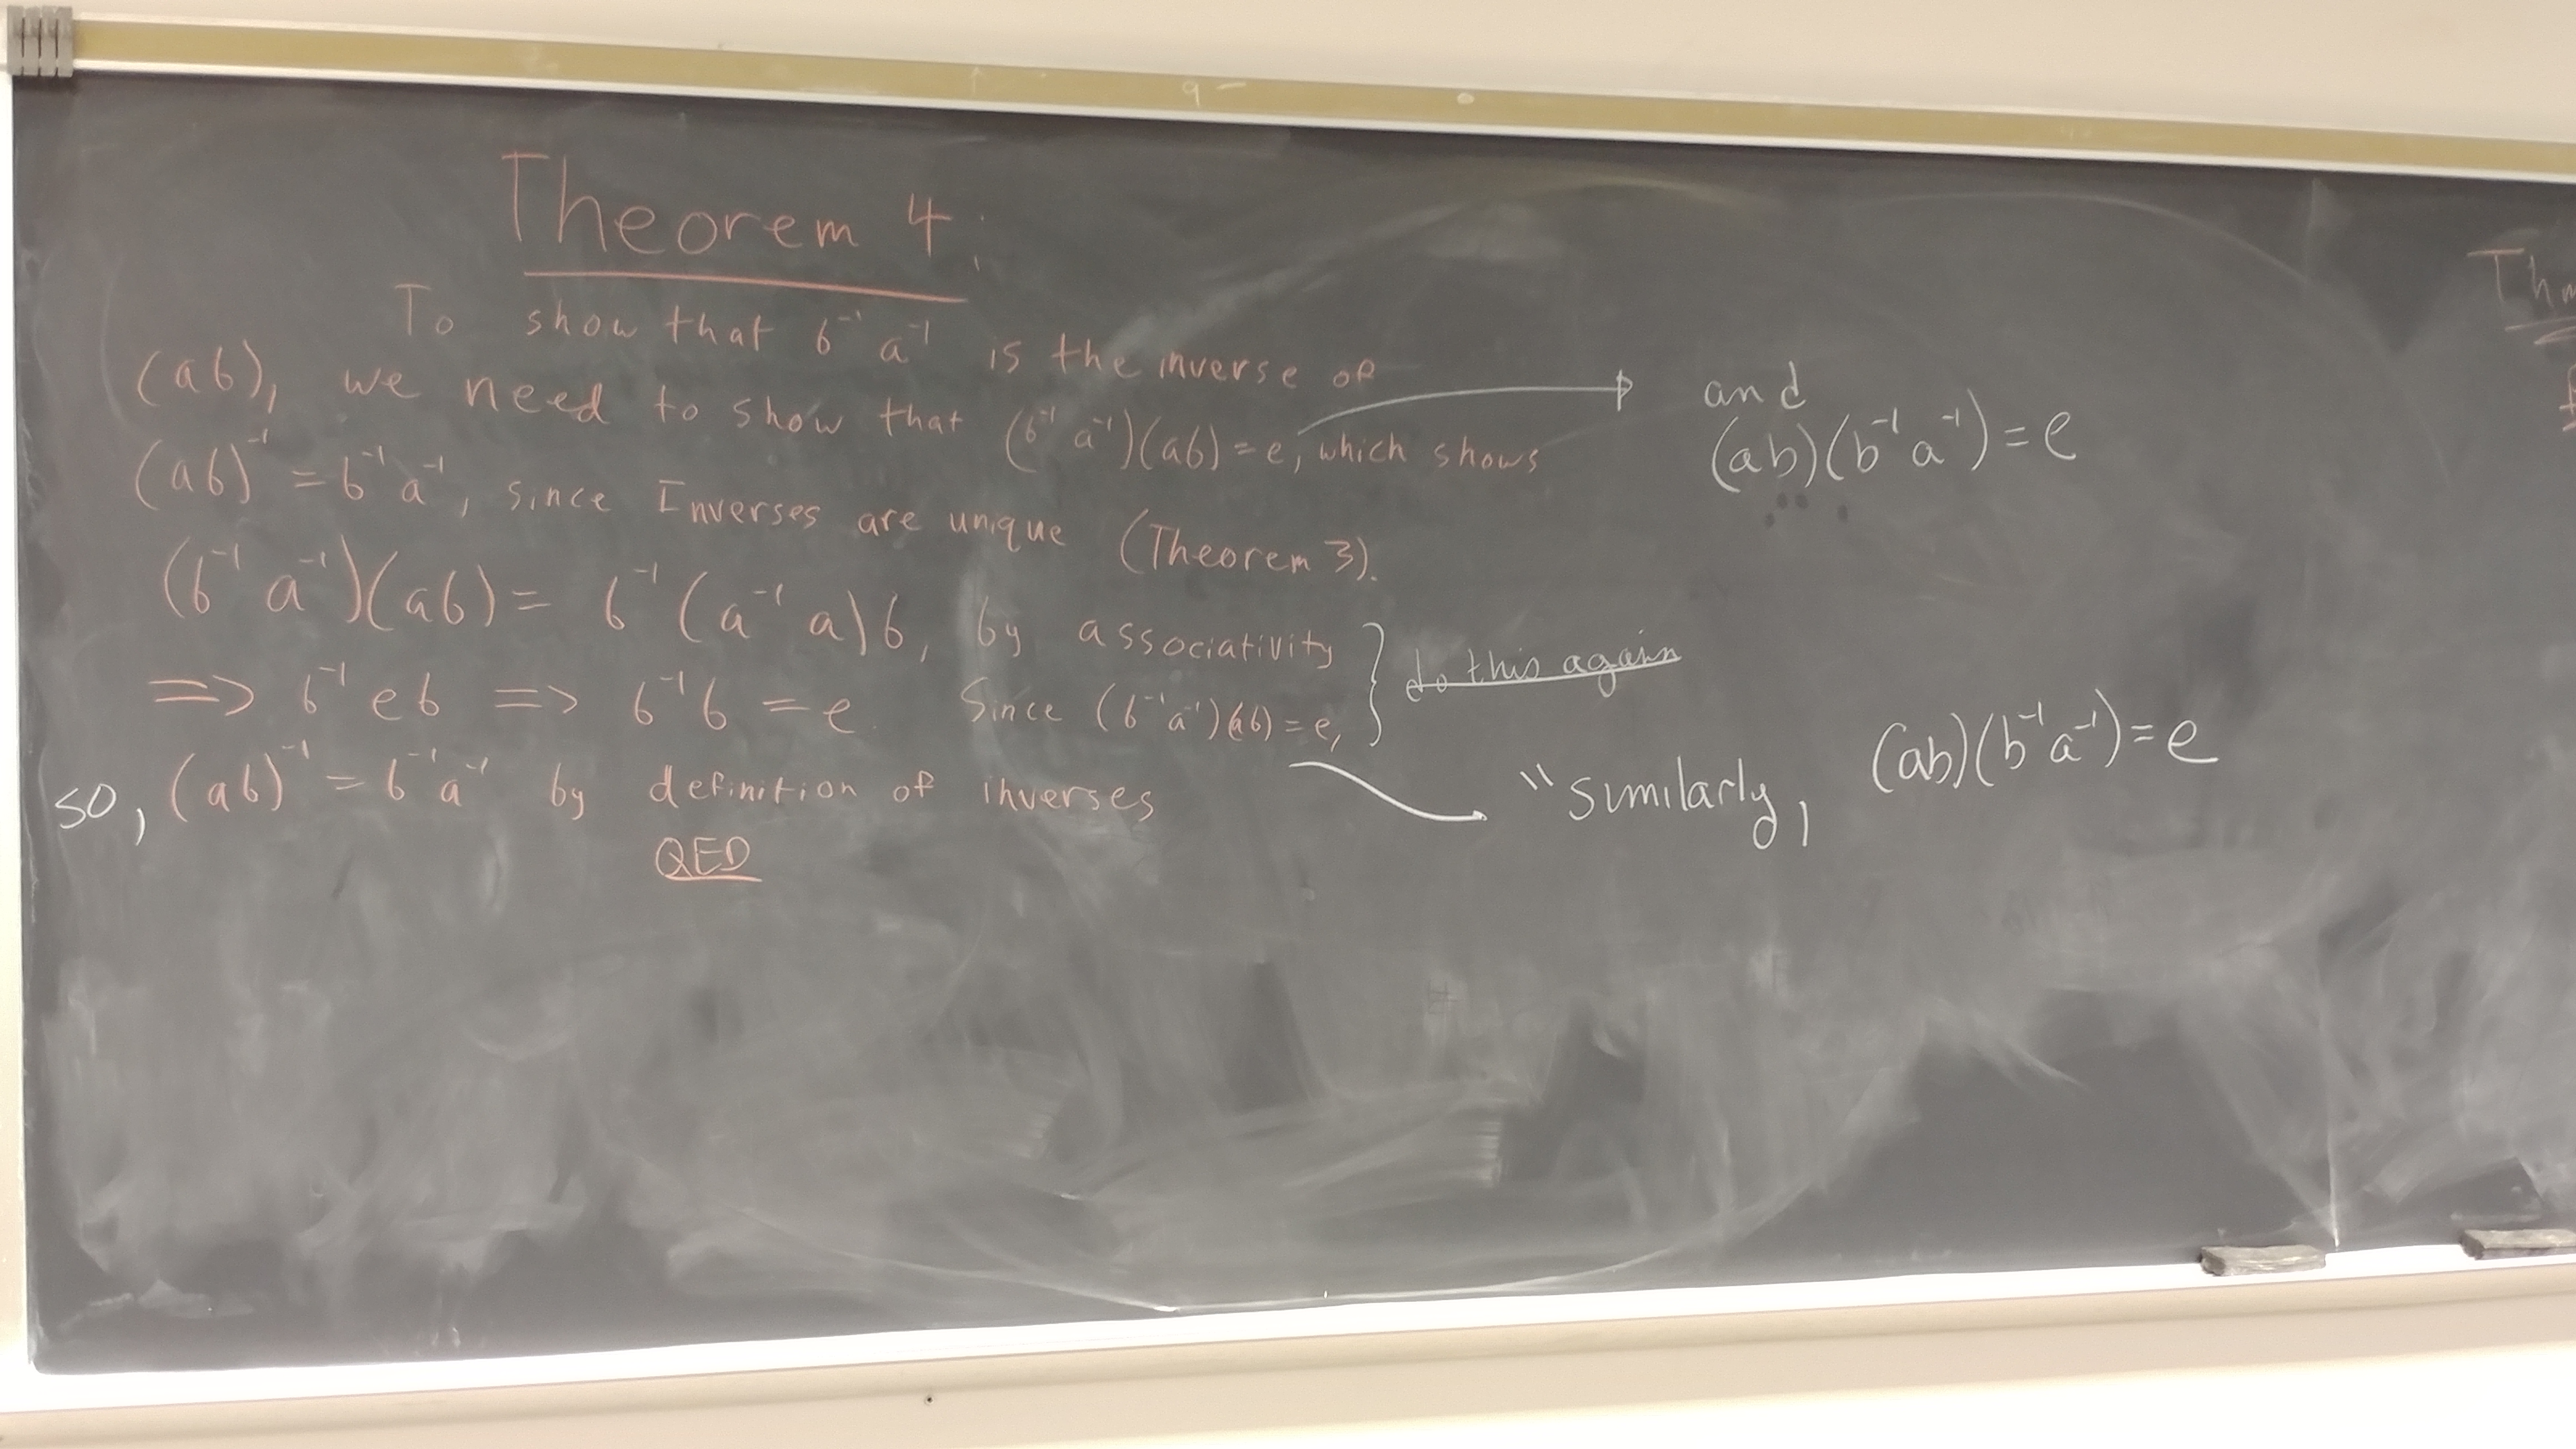 Theorem 4:
To show that b⁻¹ a⁻¹ is the inverse of
(ab), we need to show that (b⁻¹ a⁻¹)(ab) = e, which shows
(ab)⁻¹ = b⁻¹ a⁻¹, since Inverses are unique (Theorem 3).
(b⁻¹ a⁻¹)(ab) = b⁻¹ (a⁻¹ a) b, by associativity
=> b⁻¹ e b => b⁻¹ b = e. Since (b⁻¹ a⁻¹)(ab) = e,
so, (ab)⁻¹ = b⁻¹ a⁻¹ by definition of inverses
QED
and
(ab)(b⁻¹ a⁻¹) = e
do this again
"similarly, (ab)(b⁻¹ a⁻¹) = e
Thm